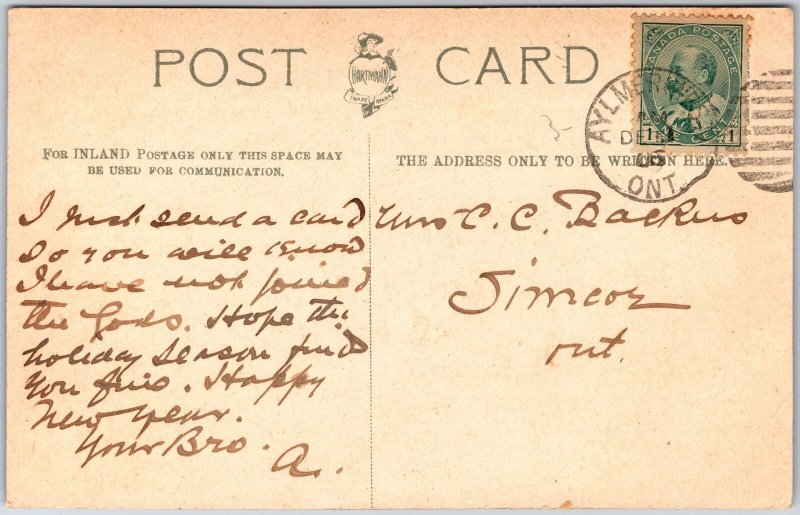 POST CARD
HARTMANN
TRADE MARK
CANADA POSTAGE
1 CENT 1
AYLMER
DE
ONT.
FOR INLAND POSTAGE ONLY THIS SPACE MAY
BE USED FOR COMMUNICATION.
THE ADDRESS ONLY TO BE WRITTEN HERE.
I must send a card
So you will know
I have not joined
the Gods. Hope the
holiday season find
you fine. Happy
New Year.
Your Bro.
A.
Mrs C. C. Backus
Simcoe
Ont.